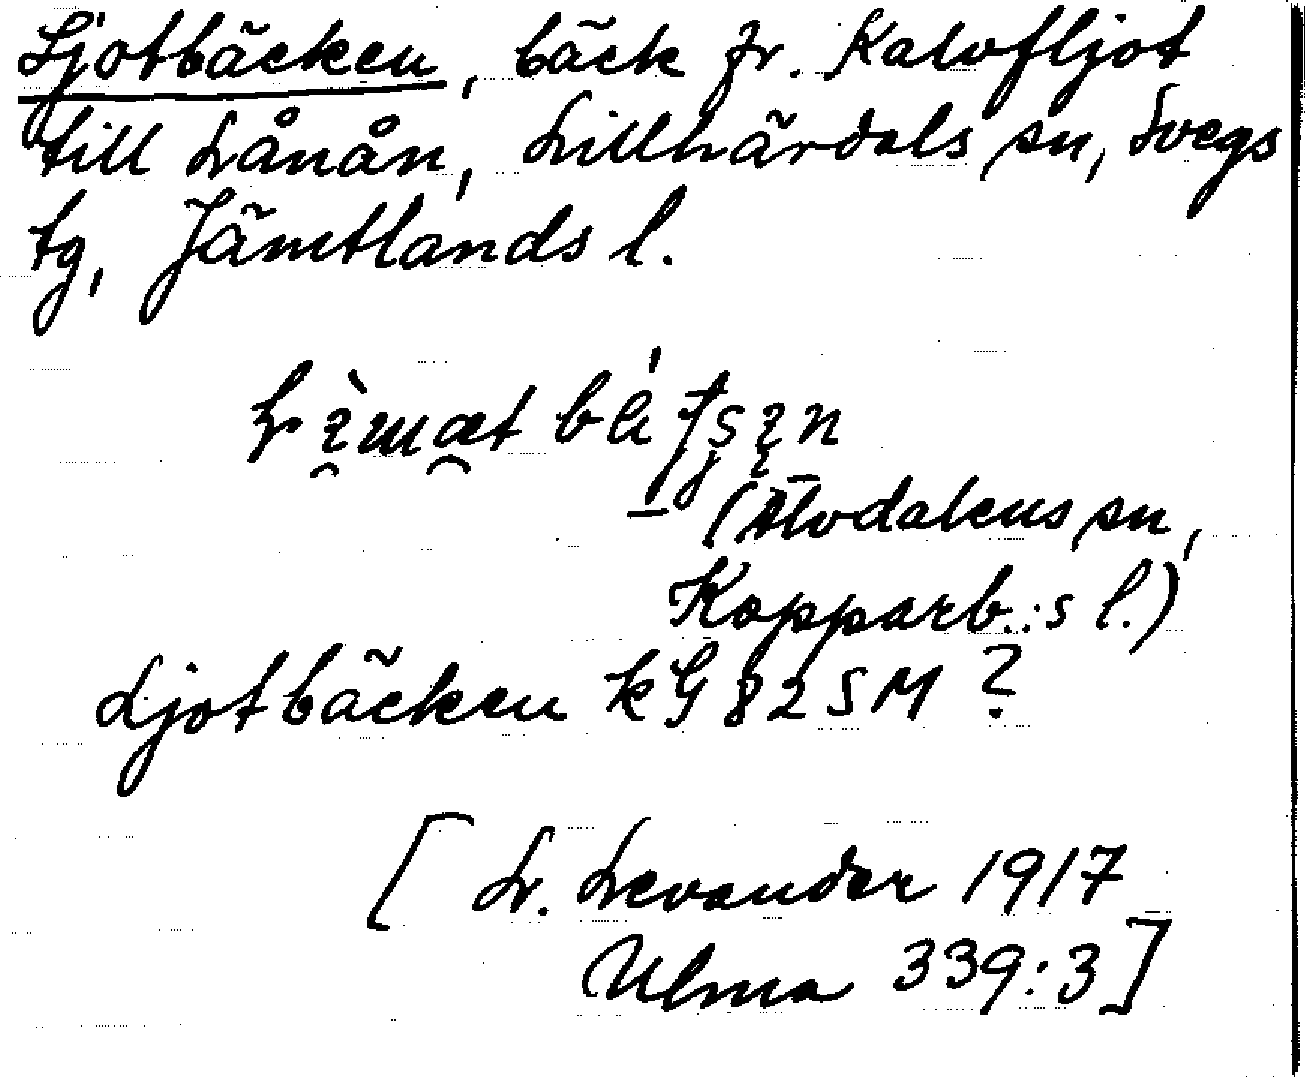 Ljotbäcken, bäck fr. Kalvfljot
till Lånån, Lillhärdals sn, Svegs
tg, Jämtlands l.
(Älvdalens sn,
Kopparb.:s l.)
Ljotbäcken kG 82 SM ?
[L. Levander 1917
Ulma 339:3]